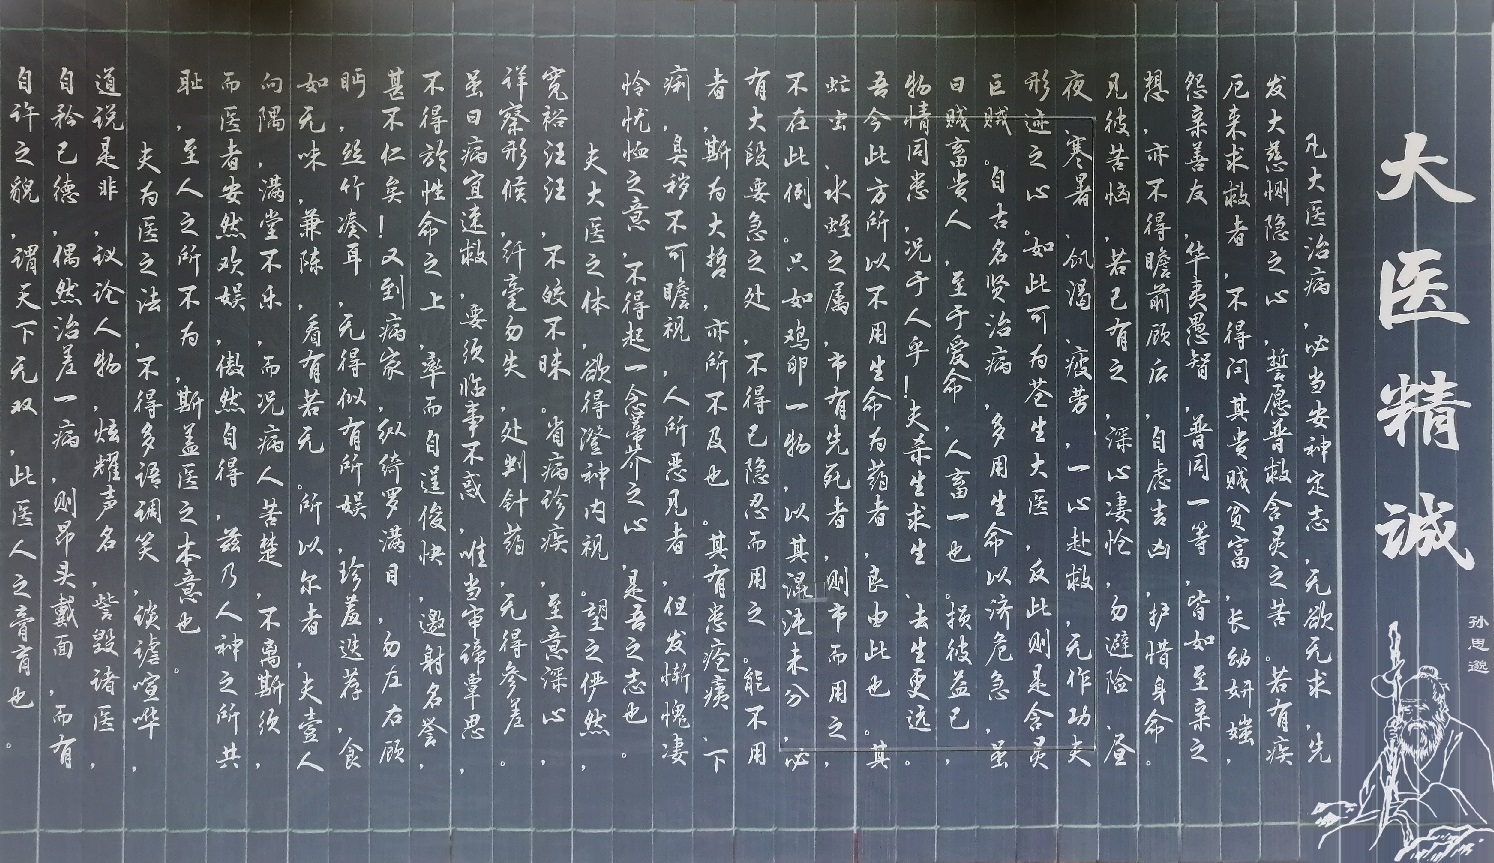 大医精诚
孙思邈
凡大医治病，必当安神定志，无欲无求，先
发大慈恻隐之心，誓愿普救含灵之苦。若有疾
厄来求救者，不得问其贵贱贫富，长幼妍媸，
怨亲善友，华夷愚智，普同一等，皆如至亲之
想，亦不得瞻前顾后，自虑吉凶，护惜身命。
见彼苦恼，若己有之，深心凄怆，勿避险、昼
夜、寒暑、饥渴、疲劳，一心赴救，无作功夫
形迹之心。如此可为苍生大医，反此则是含灵
巨贼。自古名贤治病，多用生命以济危急，虽
曰贱畜贵人，至于爱命，人畜一也。损彼益己，
物情同患，况于人乎！夫杀生求生，去生更远。
吾今此方所以不用生命为药者，良由此也。其
虻虫、水蛭之属，市有先死者，则市而用之，
不在此例。只如鸡卵一物，以其混沌未分，必
有大段要急之处，不得已隐忍而用之。能不用
者，斯为大哲，亦所不及也。其有患疮痍、下
痢，臭秽不可瞻视，人所恶见者，但发惭愧凄
怜忧恤之意，不得起一念蒂芥之心，是吾之志也。
夫大医之体，欲得澄神内视，望之俨然，
宽裕汪汪，不皎不昧。省病诊疾，至意深心，
详察形候，纤毫勿失，处判针药，无得参差。
虽曰病宜速救，要须临事不惑，唯当审谛覃思，
不得于性命之上，率而自逞俊快，邀射名誉，
甚不仁矣！又到病家，纵绮罗满目，勿左右顾
眄，丝竹凑耳，无得似有所娱，珍羞迭荐，食
如无味，兼陈，看有若无。所以尔者，夫壹人
向隅，满堂不乐，而况病人苦楚，不离斯须，
而医者安然欢娱，傲然自得，兹乃人神之所共
耻，至人之所不为，斯盖医之本意也。
夫为医之法，不得多语调笑，谈谑喧哗，
道说是非，议论人物，炫耀声名，訾毁诸医，
自矜己德，偶然治差一病，则昂头戴面，而有
自许之貌，谓天下无双，此医人之膏肓也。